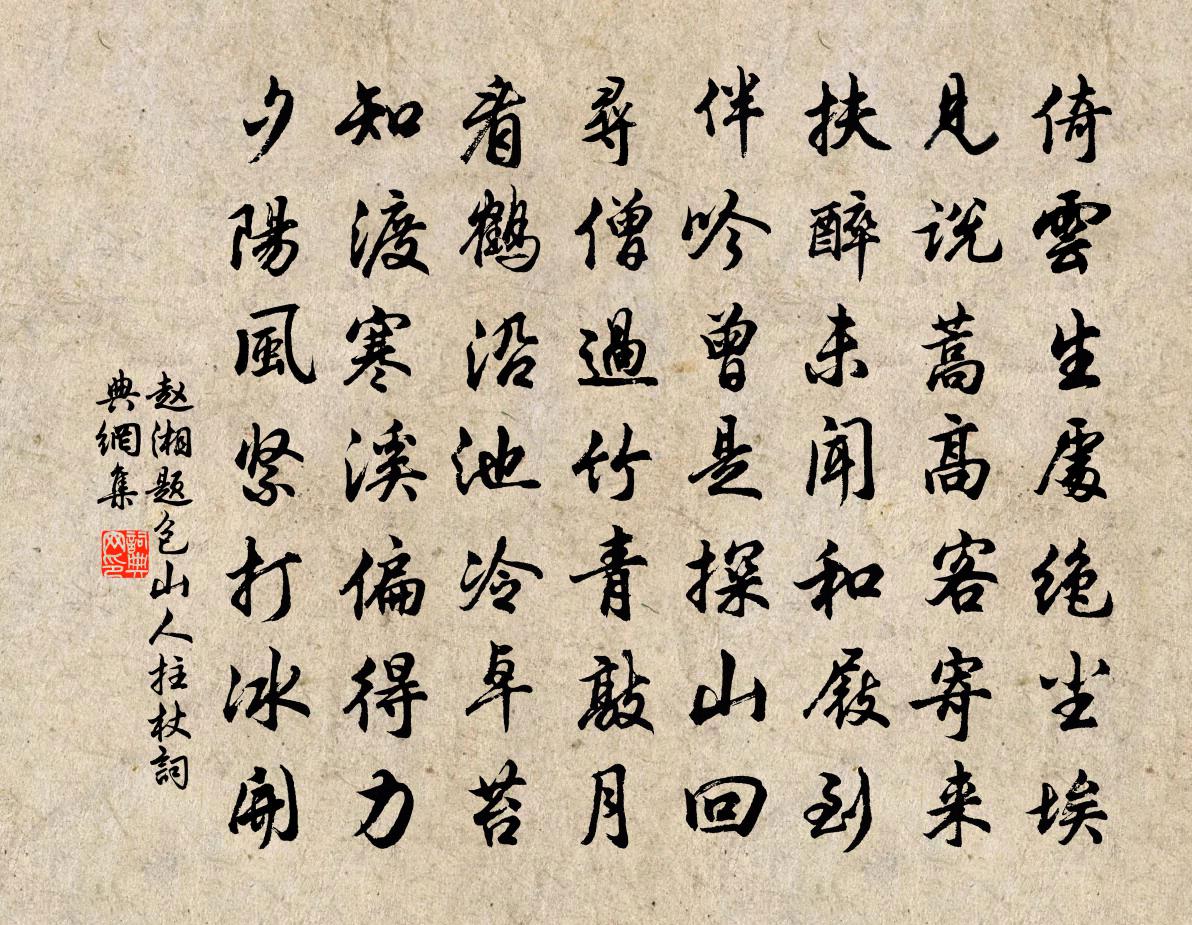 倚雲生處绝尘埃
見说蒿高客寄来
扶醉未闻和屐到
伴吟曾是探山回
尋僧過竹青敲月
看鶴沿池冷卓苔
知渡寒溪偏得力
夕陽風紧打冰開
赵湘题色山人拄杖詞
典網集
詞典
网印